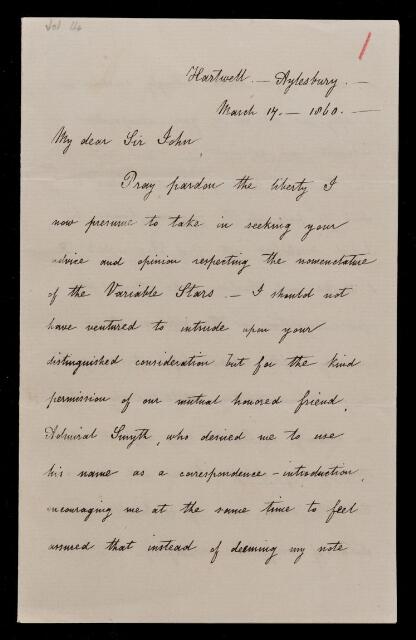 Hartwell. - Aylesbury. -
March 17. - 1860. -
My dear Sir John,
Pray pardon the liberty I
now presume to take in seeking your
advice and opinion respecting the nomenclature
of the Variable Stars. - I should not
have ventured to intrude upon your
distinguished consideration but for the kind
permission of our mutual honored friend,
Admiral Smyth, who desired me to use
his name as a correspondence - introduction,
encouraging me at the same time to feel
assured that instead of deeming my note